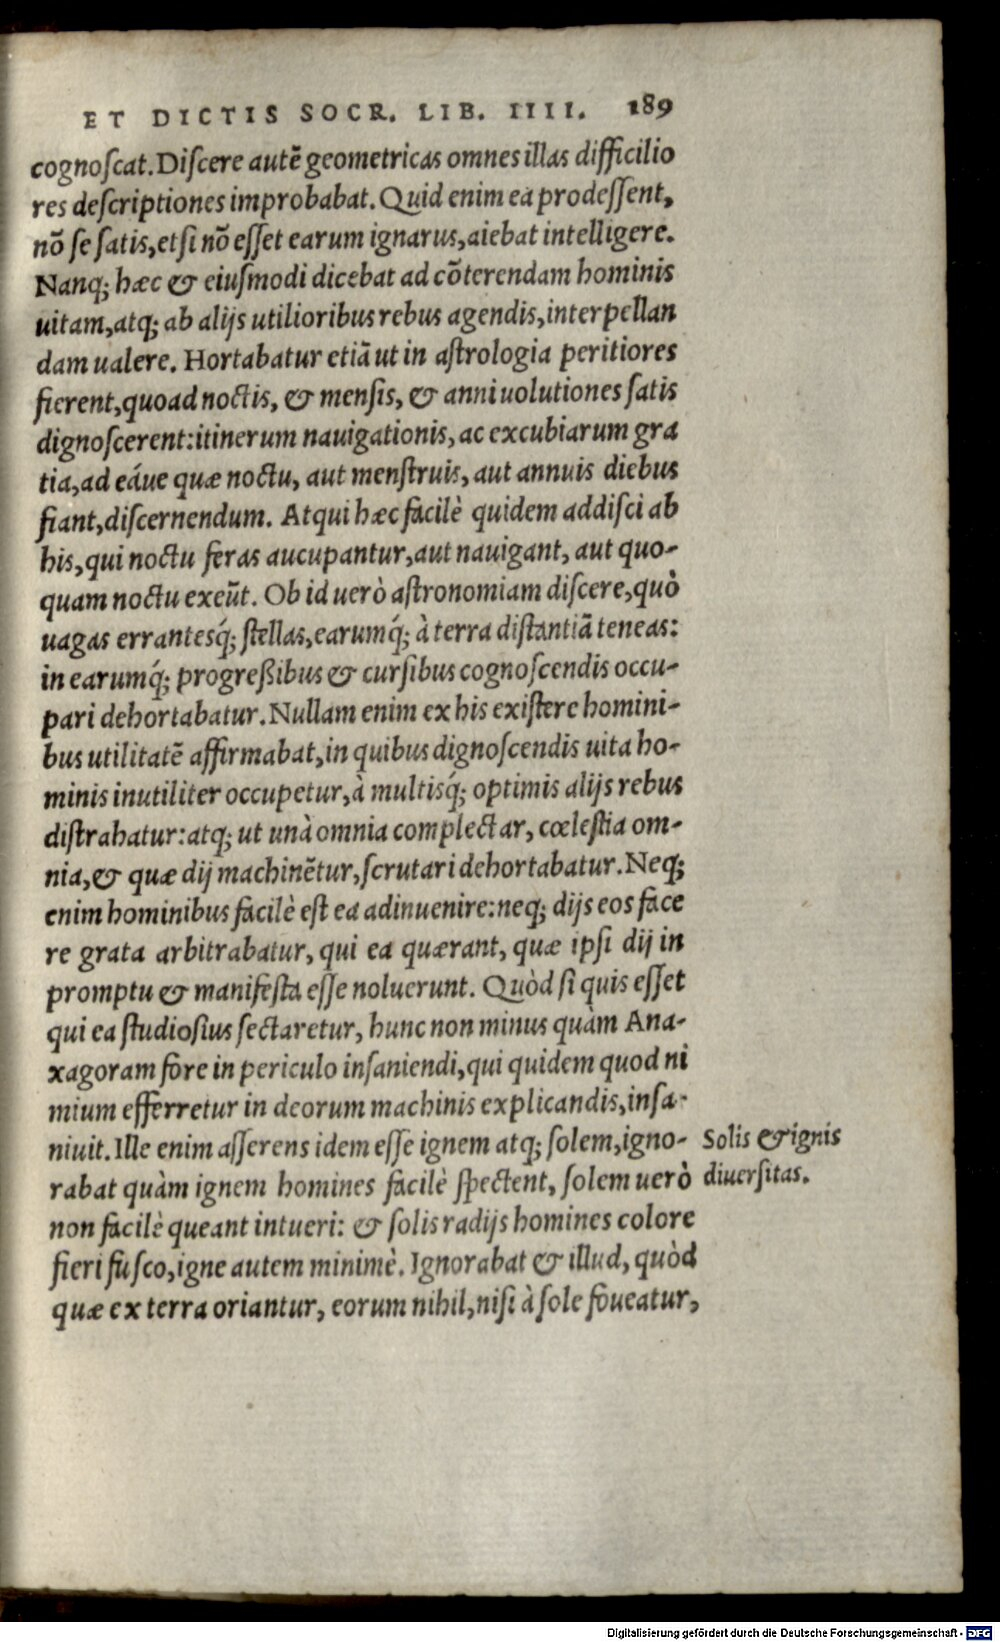 ET DICTIS SOCR. LIB. IIII. 189
cognoſcat. Diſcere autē geometricas omnes illas difficilio
res deſcriptiones improbabat. Quid enim ea prodeſſent,
nō ſe ſatis, etſi nō eſſet earum ignarus, aiebat intelligere.
Nanq; hæc & eiuſmodi dicebat ad cōterendam hominis
uitam, atq; ab alijs utilioribus rebus agendis, interpellan
dam ualere. Hortabatur etiā ut in aſtrologia peritiores
fierent, quoad noctis, & menſis, & anni uolutiones ſatis
dignoſcerent: itinerum nauigationis, ac excubiarum gra
tia, ad eáue quæ noctu, aut menſtruis, aut annuis diebus
fiant, diſcernendum. Atqui hæc facilè quidem addiſci ab
his, qui noctu feras aucupantur, aut nauigant, aut quo-
quam noctu exeūt. Ob id uerò aſtronomiam diſcere, quò
uagas errantesq́; ſtellas, earumq́; à terra diſtantiā teneas:
in earumq́; progreßibus & curſibus cognoſcendis occu-
pari dehortabatur. Nullam enim ex his exiſtere homini-
bus utilitatē affirmabat, in quibus dignoſcendis uita ho-
minis inutiliter occupetur, à multisq́; optimis alijs rebus
diſtrahatur: atq; ut unà omnia complectar, cœleſtia om-
nia, & quæ dij machinētur, ſcrutari dehortabatur. Neq;
enim hominibus facilè eſt ea adinuenire: neq; dijs eos face
re grata arbitrabatur, qui ea quærant, quæ ipſi dij in
promptu & manifeſta eſſe noluerunt. Quòd ſi quis eſſet
qui ea ſtudioſius ſectaretur, hunc non minus quàm Ana-
xagoram fore in periculo inſaniendi, qui quidem quod ni
mium efferretur in deorum machinis explicandis, inſa-
niuit. Ille enim aſſerens idem eſſe ignem atq; ſolem, igno-
rabat quàm ignem homines facilè ſpectent, ſolem uerò
non facilè queant intueri: & ſolis radijs homines colore
fieri fuſco, igne autem minimè. Ignorabat & illud, quòd
quæ ex terra oriantur, eorum nihil, niſi à ſole foueatur,
Solis & ignis
diuerſitas.
Digitalisierung gefördert durch die Deutsche Forschungsgemeinschaft - DFG